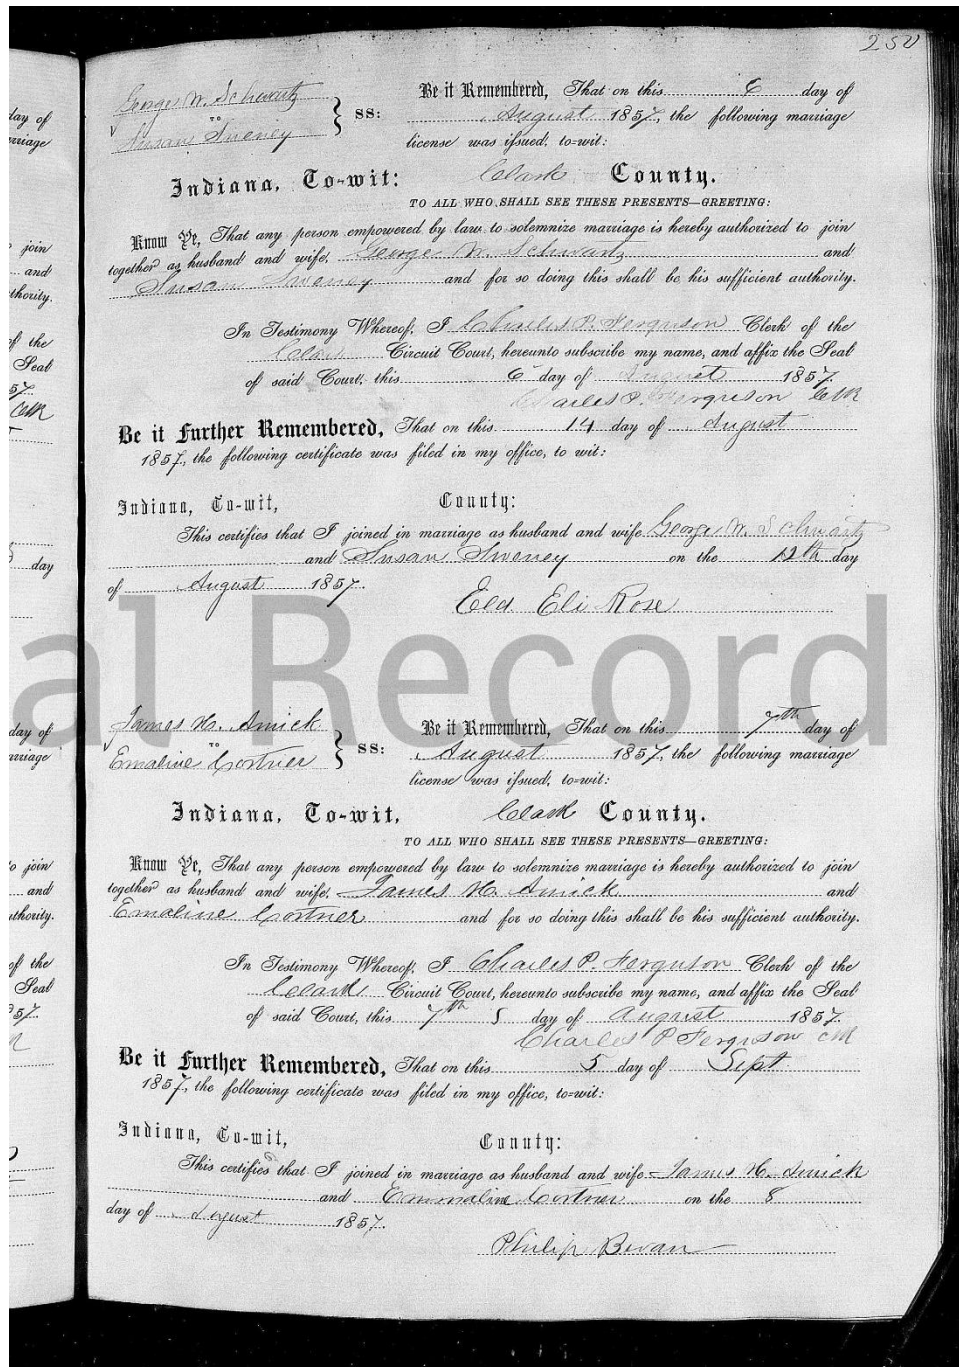 250
George W. Schwartz
to
Susan Sweney
} SS:
Be it Remembered, That on this 6 day of
August 1857, the following marriage
license was issued, to-wit:
Indiana, To-wit: Clark County.
TO ALL WHO SHALL SEE THESE PRESENTS—GREETING:
Know Ye, That any person empowered by law to solemnize marriage is hereby authorized to join
together as husband and wife, George W. Schwartz and
Susan Sweney and for so doing this shall be his sufficient authority.
In Testimony Whereof, I Charles P. Ferguson Clerk of the
Clark Circuit Court, hereunto subscribe my name, and affix the Seal
of said Court, this 6 day of August 1857.
Charles P. Ferguson Clk
Be it Further Remembered, That on this 14 day of August
1857, the following certificate was filed in my office, to wit:
Indiana, To-wit, County:
This certifies that I joined in marriage as husband and wife George W. Schwartz
and Susan Sweney on the 12th day
of August 1857.
Eld Eli Rose
al Record
James H. Amick
to
Emaline Cortner
} SS:
Be it Remembered, That on this 7th day of
August 1857, the following marriage
license was issued, to-wit:
Indiana, To-wit, Clark County.
TO ALL WHO SHALL SEE THESE PRESENTS—GREETING:
Know Ye, That any person empowered by law to solemnize marriage is hereby authorized to join
together as husband and wife, James H. Amick and
Emaline Cortner and for so doing this shall be his sufficient authority.
In Testimony Whereof, I Charles P. Ferguson Clerk of the
Clark Circuit Court, hereunto subscribe my name, and affix the Seal
of said Court, this 7th day of August 1857.
Charles P Ferguson Clk
Be it Further Remembered, That on this 5 day of Sept
1857, the following certificate was filed in my office, to-wit:
Indiana, To-wit, County:
This certifies that I joined in marriage as husband and wife James H. Amick
and Emmaline Cortner on the 8
day of August 1857.
Philip Bevan